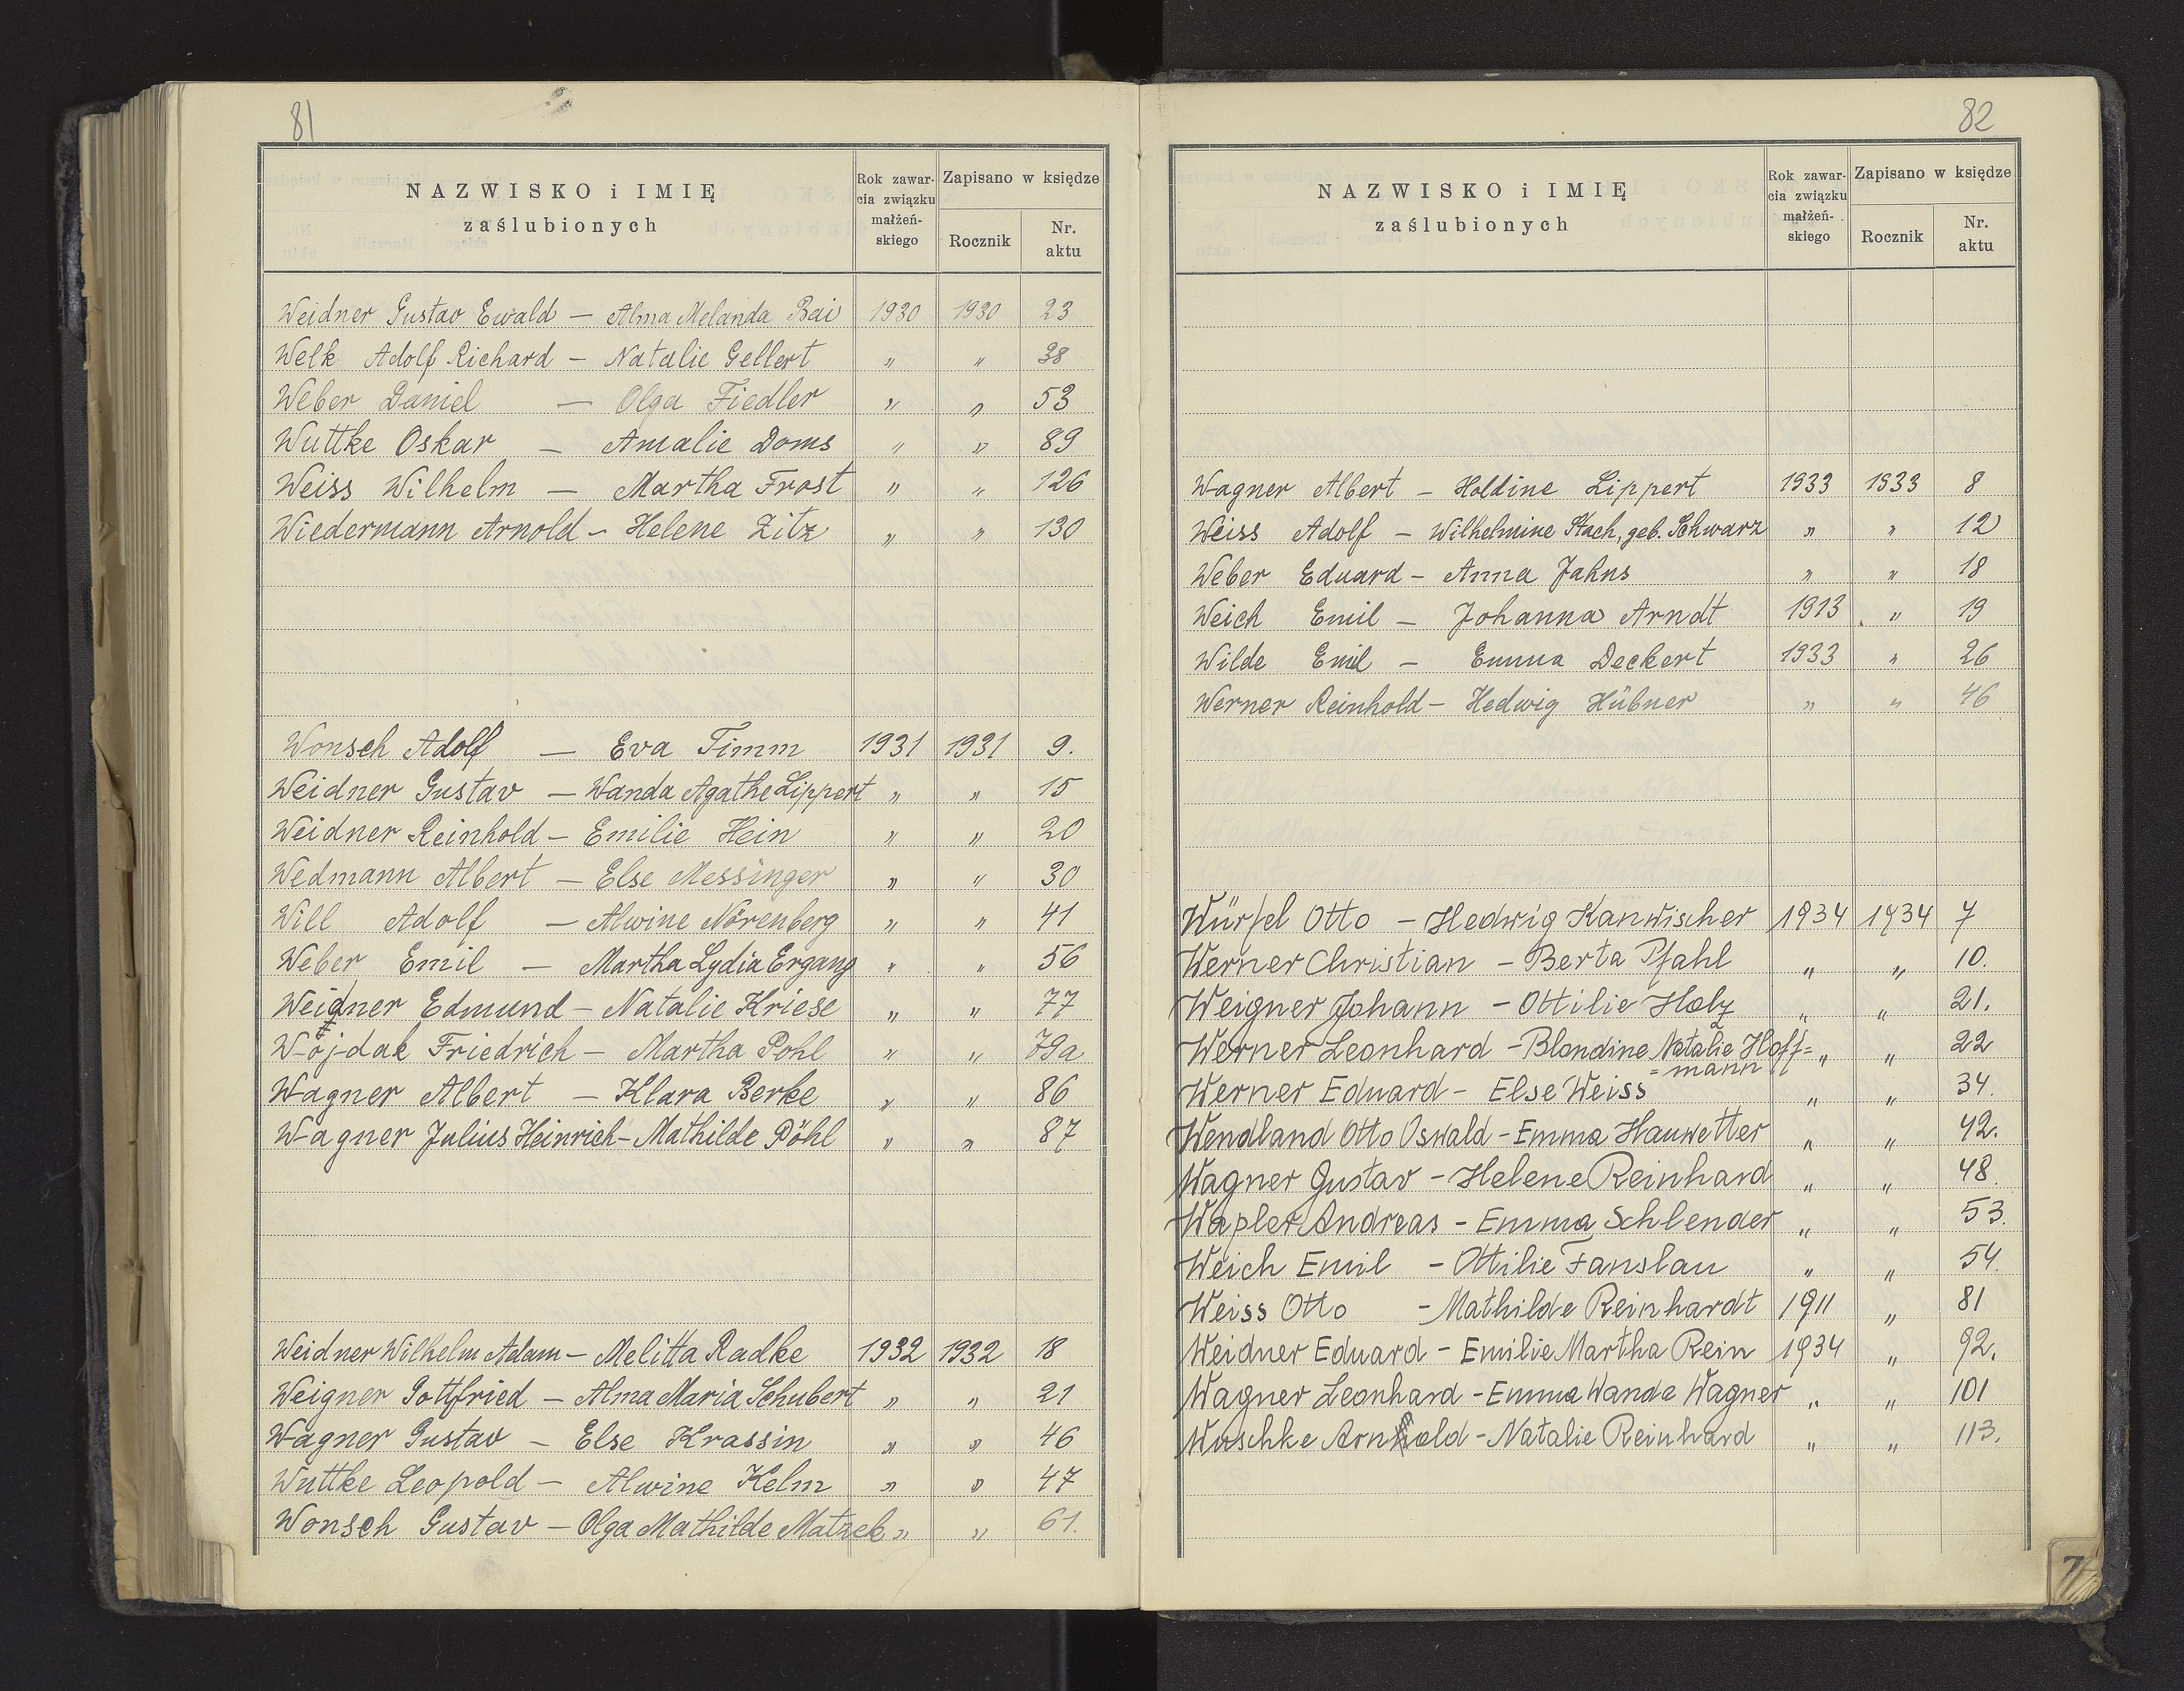 81
NAZWISKO i IMIĘ
zaślubionych
Rok zawar-
cia związku
małżeń-
skiego
Zapisano w księdze
Rocznik
Nr.
aktu
Weidner Gustav Ewald — Alma Melanda Bai 1930 1930 23
Welk Adolf Richard — Natalie Gellert " " 38
Weber Daniel — Olga Fiedler " " 53
Wuttke Oskar — Amalie Doms " " 89
Weiss Wilhelm — Martha Frost " " 126
Wiedermann Arnold — Helene Zitz " " 130
Wonsch Adolf — Eva Timm 1931 1931 9.
Weidner Gustav — Wanda Agathe Lippert " " 15
Weidner Reinhold — Emilie Hein " " 20
Wedmann Albert — Else Messinger " " 30
Will Adolf — Alwine Nörenberg " " 41
Weber Emil — Martha Lydia Ergang " " 56
Weidner Edmund — Natalie Kriese " " 77
Wojdak Friedrich — Martha Pohl " " 79a
Wagner Albert — Klara Berke " " 86
Wagner Julius Heinrich — Mathilde Pöhl " " 87
Weidner Wilhelm Adam — Melitta Radke 1932 1932 18
Weigner Gottfried — Alma Maria Schubert " " 21
Wagner Gustav — Else Krassin " " 46
Wuttke Leopold — Alwine Kelm " " 47
Wonsch Gustav — Olga Mathilde Matzek " " 61.
82
NAZWISKO i IMIĘ
zaślubionych
Rok zawar-
cia związku
małżeń-
skiego
Zapisano w księdze
Rocznik
Nr.
aktu
Wagner Albert — Holdine Lippert 1933 1933 8
Weiss Adolf — Wilhelmine Stach, geb. Schwarz " " 12
Weber Eduard — Anna Jahns " " 18
Weich Emil — Johanna Arndt 1913 " 19
Wilde Emil — Emma Deckert 1933 " 26
Werner Reinhold — Hedwig Hübner " " 46
Würfel Otto — Hedwig Kanwischer 1934 1934 7
Werner Christian — Berta Pfahl " " 10.
Weigner Johann — Ottilie Holz " " 21.
Werner Leonhard — Blondine Natalie Hoff= " " 22
=mann
Werner Eduard — Else Weiss " " 34.
Wendland Otto Oswald — Emma Hauwetter " " 42.
Wagner Gustav — Helene Reinhard " " 48.
Wapler Andreas — Emma Schlender " " 53.
Weich Emil — Ottilie Fanslau " " 54.
Weiss Otto — Mathilde Reinhardt 1911 " 81
Weidner Eduard — Emilie Martha Rein 1934 " 92.
Wagner Leonhard — Emma Wanda Wagner " " 101
Wuschke Arnold — Natalie Reinhard " " 113.